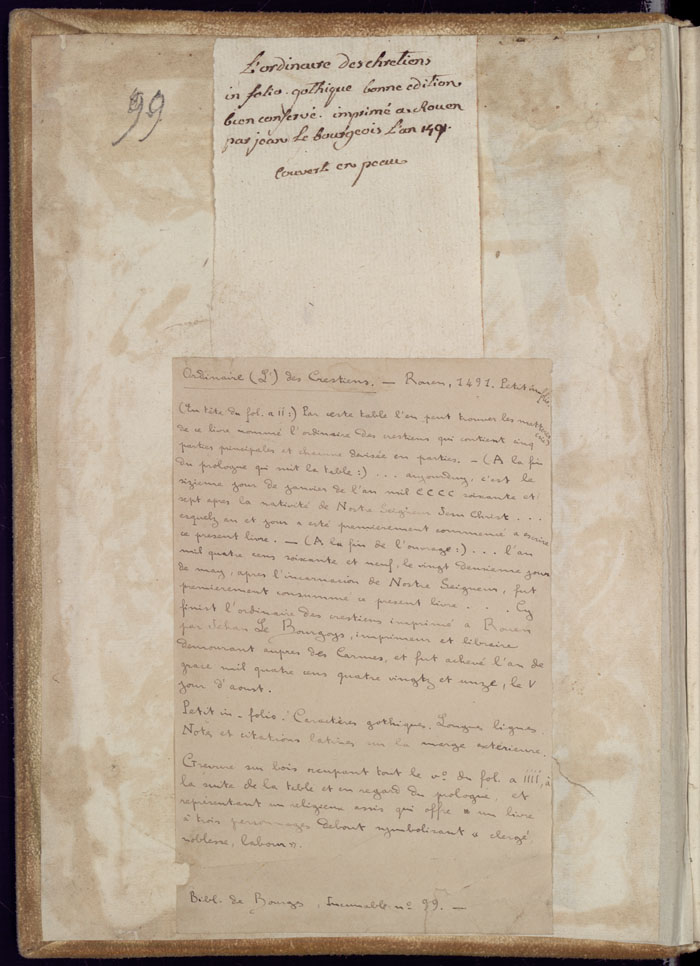 99
L'ordinaire des chretiens
in folio. gothique bonne edition
bien conservé. imprimé a Rouen
par jean Le bourgeois L'an 1491.
Couvert en peau
Ordinaire (L') des Crestiens. — Rouen, 1491. Petit in-fol.
(En tête du fol. a II :) Par ceste table l'en peut trouver les matteres
de ce livre nommé l'ordinaire des crestiens qui contient cinq
parties principales et chacune divisée en parties. — (A la fin
du prologue qui suit la table :) . . . aujourduy, c'est le
sizieme jour de janvier de l'an mil CCCC soixante et
sept apres la nativité de Nostre Seigneur Jesu Christ . . .
esquelz an et jour a esté premièrement commencé a escrire
ce present livre. — (A la fin de l'ouvrage :) . . . l'an
mil quatre cens soixante et neuf, le vingt deuxiesme jour
de may, apres l'incarnacion de Nostre Seigneur, fut
premierement consummé ce present livre . . . Cy
finist l'ordinaire des crestiens imprimé a Rouen
par Jehan Le Bourgoys, imprimeur et libraire
demourant aupres des Carmes, et fut achevé l'an de
grace mil quatre cens quatre vingtz et unze, le V
jour d'aoust.
Petit in-folio. Caractères gothiques. Longues lignes.
Notes et citations latines sur la marge extérieure.
Gravure sur bois occupant tout le vº. du fol. a IIII, à
la suite de la table et en regard du prologue, et
représentant un religieux assis qui offre « un livre
à trois personnages debout symbolisant « clergé,
noblesse, labour ».
Bibl. de Bourges, Incunable nº 99. —